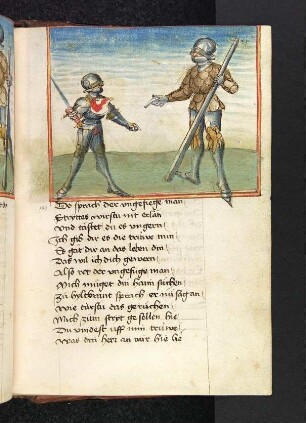 Do sprach der vngefiege man
Strytes wirstu nit erlan
Vnd tästet du es vngern
Ich gib dir es die trüwe min
Es gat dir an das leben din
Das wil ich dich gewern
Also ret der vngefüge man
Mich müget din haim suchen
Zů hyltbrant sprach er nů sag an
Wie tarstu das gerůchen
Mich zům stryt gesellen hie
Du vindest uff min trüwe
Was din herr an mir hie lie